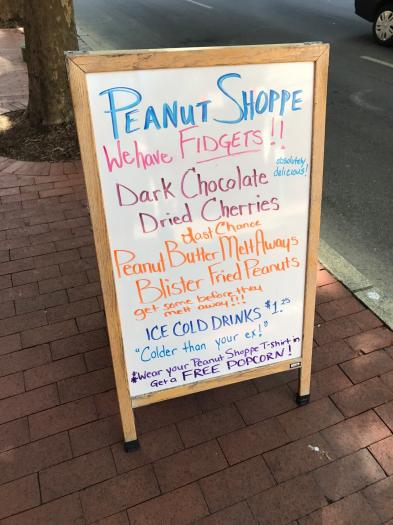 PEANUT SHOPPE
We have FIDGETS!!
absolutely
delicious!
Dark Chocolate
Dried Cherries
Last Chance
Peanut Butter MeltAways
Blister Fried Peanuts
get some before they
melt away!!!
ICE COLD DRINKS $1.25
"Colder than your ex!"
*Wear your Peanut Shoppe T-shirt in
Get a FREE POPCORN!